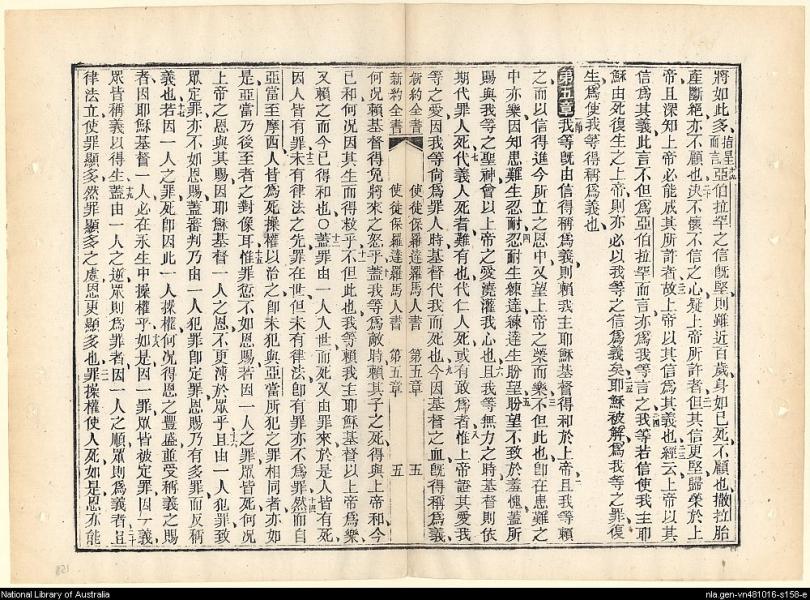 將如此多指星而言亞伯拉罕之信旣堅則雖近百歲身如已死不顧也撒拉胎
產斷絕亦不顧也決不懷不信之心疑上帝所許者但其信更堅歸榮於上
帝且深知上帝必能成其所許者故上帝以其信爲其義也經云上帝以其
信爲其義此言不但爲亞伯拉罕而言亦爲我等言之我等若信使我主耶
穌由死復生之上帝則亦必以我等之信爲義矣耶穌被解爲我等之罪復
生爲使我等得稱爲義也
第五章我等旣由信得稱爲義則賴我主耶穌基督得和於上帝且我等賴
之而以信得進今所立之恩中又望上帝之榮而樂不但此也卽在患難之
中亦樂因知患難生忍耐忍耐生練達練達生盼望盼望不致於羞愧蓋所
賜與我等之聖神曾以上帝之愛澆灌我心也且我等無力之時基督則依
期代罪人死代義人死者難有也代仁人死或有敢爲者惟上帝證其愛我
等之愛因我等尙爲罪人時基督代我而死也今因基督之血旣得稱爲義
新約全書 使徒保羅達羅馬人書 第五章 五
新約全書 使徒保羅達羅馬人書 第五章 五
何況賴基督得免將來之怒乎蓋我等爲敵時賴其子之死得與上帝和今
已和何況因其生而得救乎不但此也我等賴我主耶穌基督以上帝爲樂
又賴之而今已得和也○蓋罪由一人入世而死又由罪來於是人皆有死
因人皆有罪未有律法之先罪在世但未有律法卽有罪亦不爲罪然而自
亞當至摩西人皆爲死操權以治之卽未犯與亞當所犯之罪相同者亦如
是亞當乃後至者之對像耳惟罪愆不如恩賜若因一人之罪眾皆死何況
上帝之恩與其賜因耶穌基督一人之恩不更溥於眾乎且由一人犯罪致
眾定罪亦不如恩賜蓋審判乃由一人犯罪卽定罪恩賜乃有多罪而反稱
義也若因一人之罪死卽因此一人操權何況得恩之豐盛並受稱義之賜
者因耶穌基督一人必在永生中操權乎如是因一罪眾皆被定罪因一義
眾皆稱義以得生蓋由一人之逆眾則爲罪者因一人之順眾則爲義者且
律法立使罪顯多然罪顯多之處恩更顯多也罪操權使人死如是恩亦能
National Library of Australia
nla.gen-vn481016-s158-e